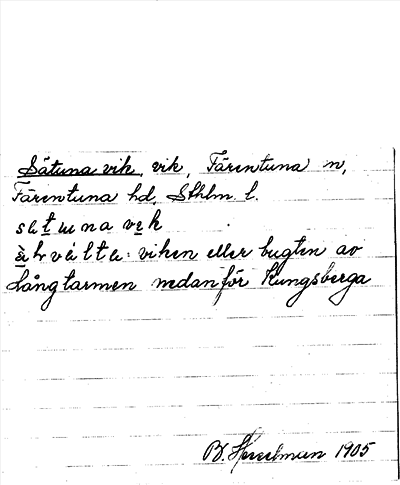 Sätuna vik, vik, Färentuna sn,
Färentuna hd, Sthlm l.
vek
viken eller bugten av
Långtarmen nedanför Kungsberga
B. Hesselman 1905